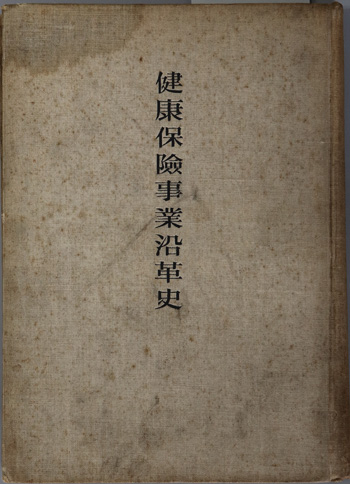 健康保險事業沿革史